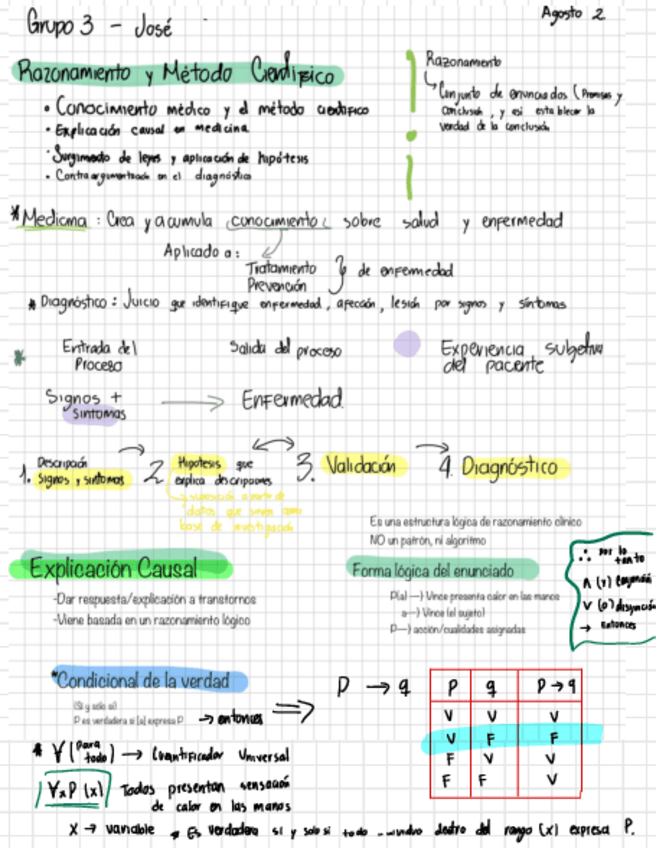 Grupo 3 - José
Agosto 2
Razonamiento y Método Científico
• Conocimiento médico y el método científico
• Explicación causal en medicina
• Surgimiento de leyes y aplicación de hipótesis
• Contraargumentación en el diagnóstico
Razonamiento
Conjunto de enunciados (Premisas y
conclusión, y así establecer la
verdad de la conclusión
* Medicina : Crea y acumula conocimiento sobre salud y enfermedad
Aplicado a :
Tratamiento
Prevención } de enfermedad
* Diagnóstico : Juicio que identifique enfermedad, afección, lesión por signos y síntomas
* Entrada del
Proceso
Salida del proceso
Signos +
Síntomas → Enfermedad
Experiencia subjetiva
del paciente
1. Descripción
Signos y síntomas
2. Hipótesis que
explica descripciones
suposición a partir de
datos que sirven como
base de investigación
3. Validación
4. Diagnóstico
Es una estructura lógica de razonamiento clínico
NO un patrón, ni algoritmo
Explicación Causal
-Dar respuesta/explicación a transtornos
-Viene basada en un razonamiento lógico
Forma lógica del enunciado
P(a) —) Vince presenta calor en las manos
a—) Vince (el sujeto)
P—) acción/cualidades asignadas
∴ por lo
tanto
∧ (y) conjunción
∨ (o) disyunción
→ entonces
*Condicional de la verdad
(Si y solo si)
P es verdadera si (a) expresa P → entonces ⇒
P → q
P q P → q
V V V
V F F
F V V
F F V
* ∀ (para todo) → Cuantificador Universal
∀xP (x) Todos presentan sensación
de calor en las manos
X → variable * Es verdadera si y solo si todo dentro del rango (x) expresa P.